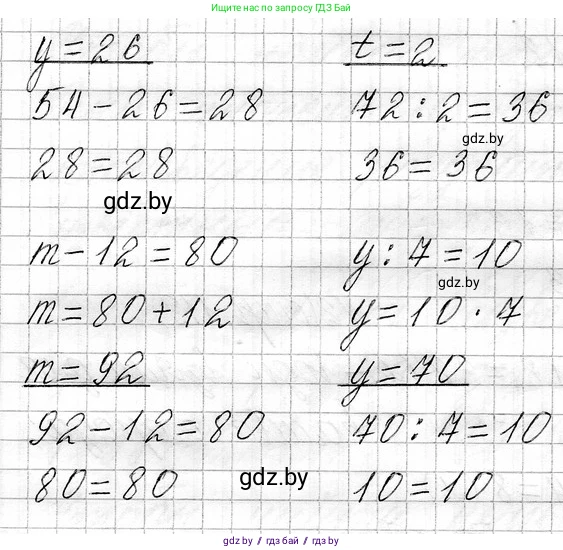 Ищите нас на GDZ Бай
y = 26
54 - 26 = 28
28 = 28
gdz.by
m - 12 = 80
m = 80 + 12
m = 92
92 - 12 = 80
80 = 80
gdz.by
t = 2
72 : 2 = 36
gdz.by
36 = 36
y : 7 = 10
gdz.by
y = 10 · 7
y = 70
70 : 7 = 10
10 = 10
gdz.by / гдз бай / gdz/by